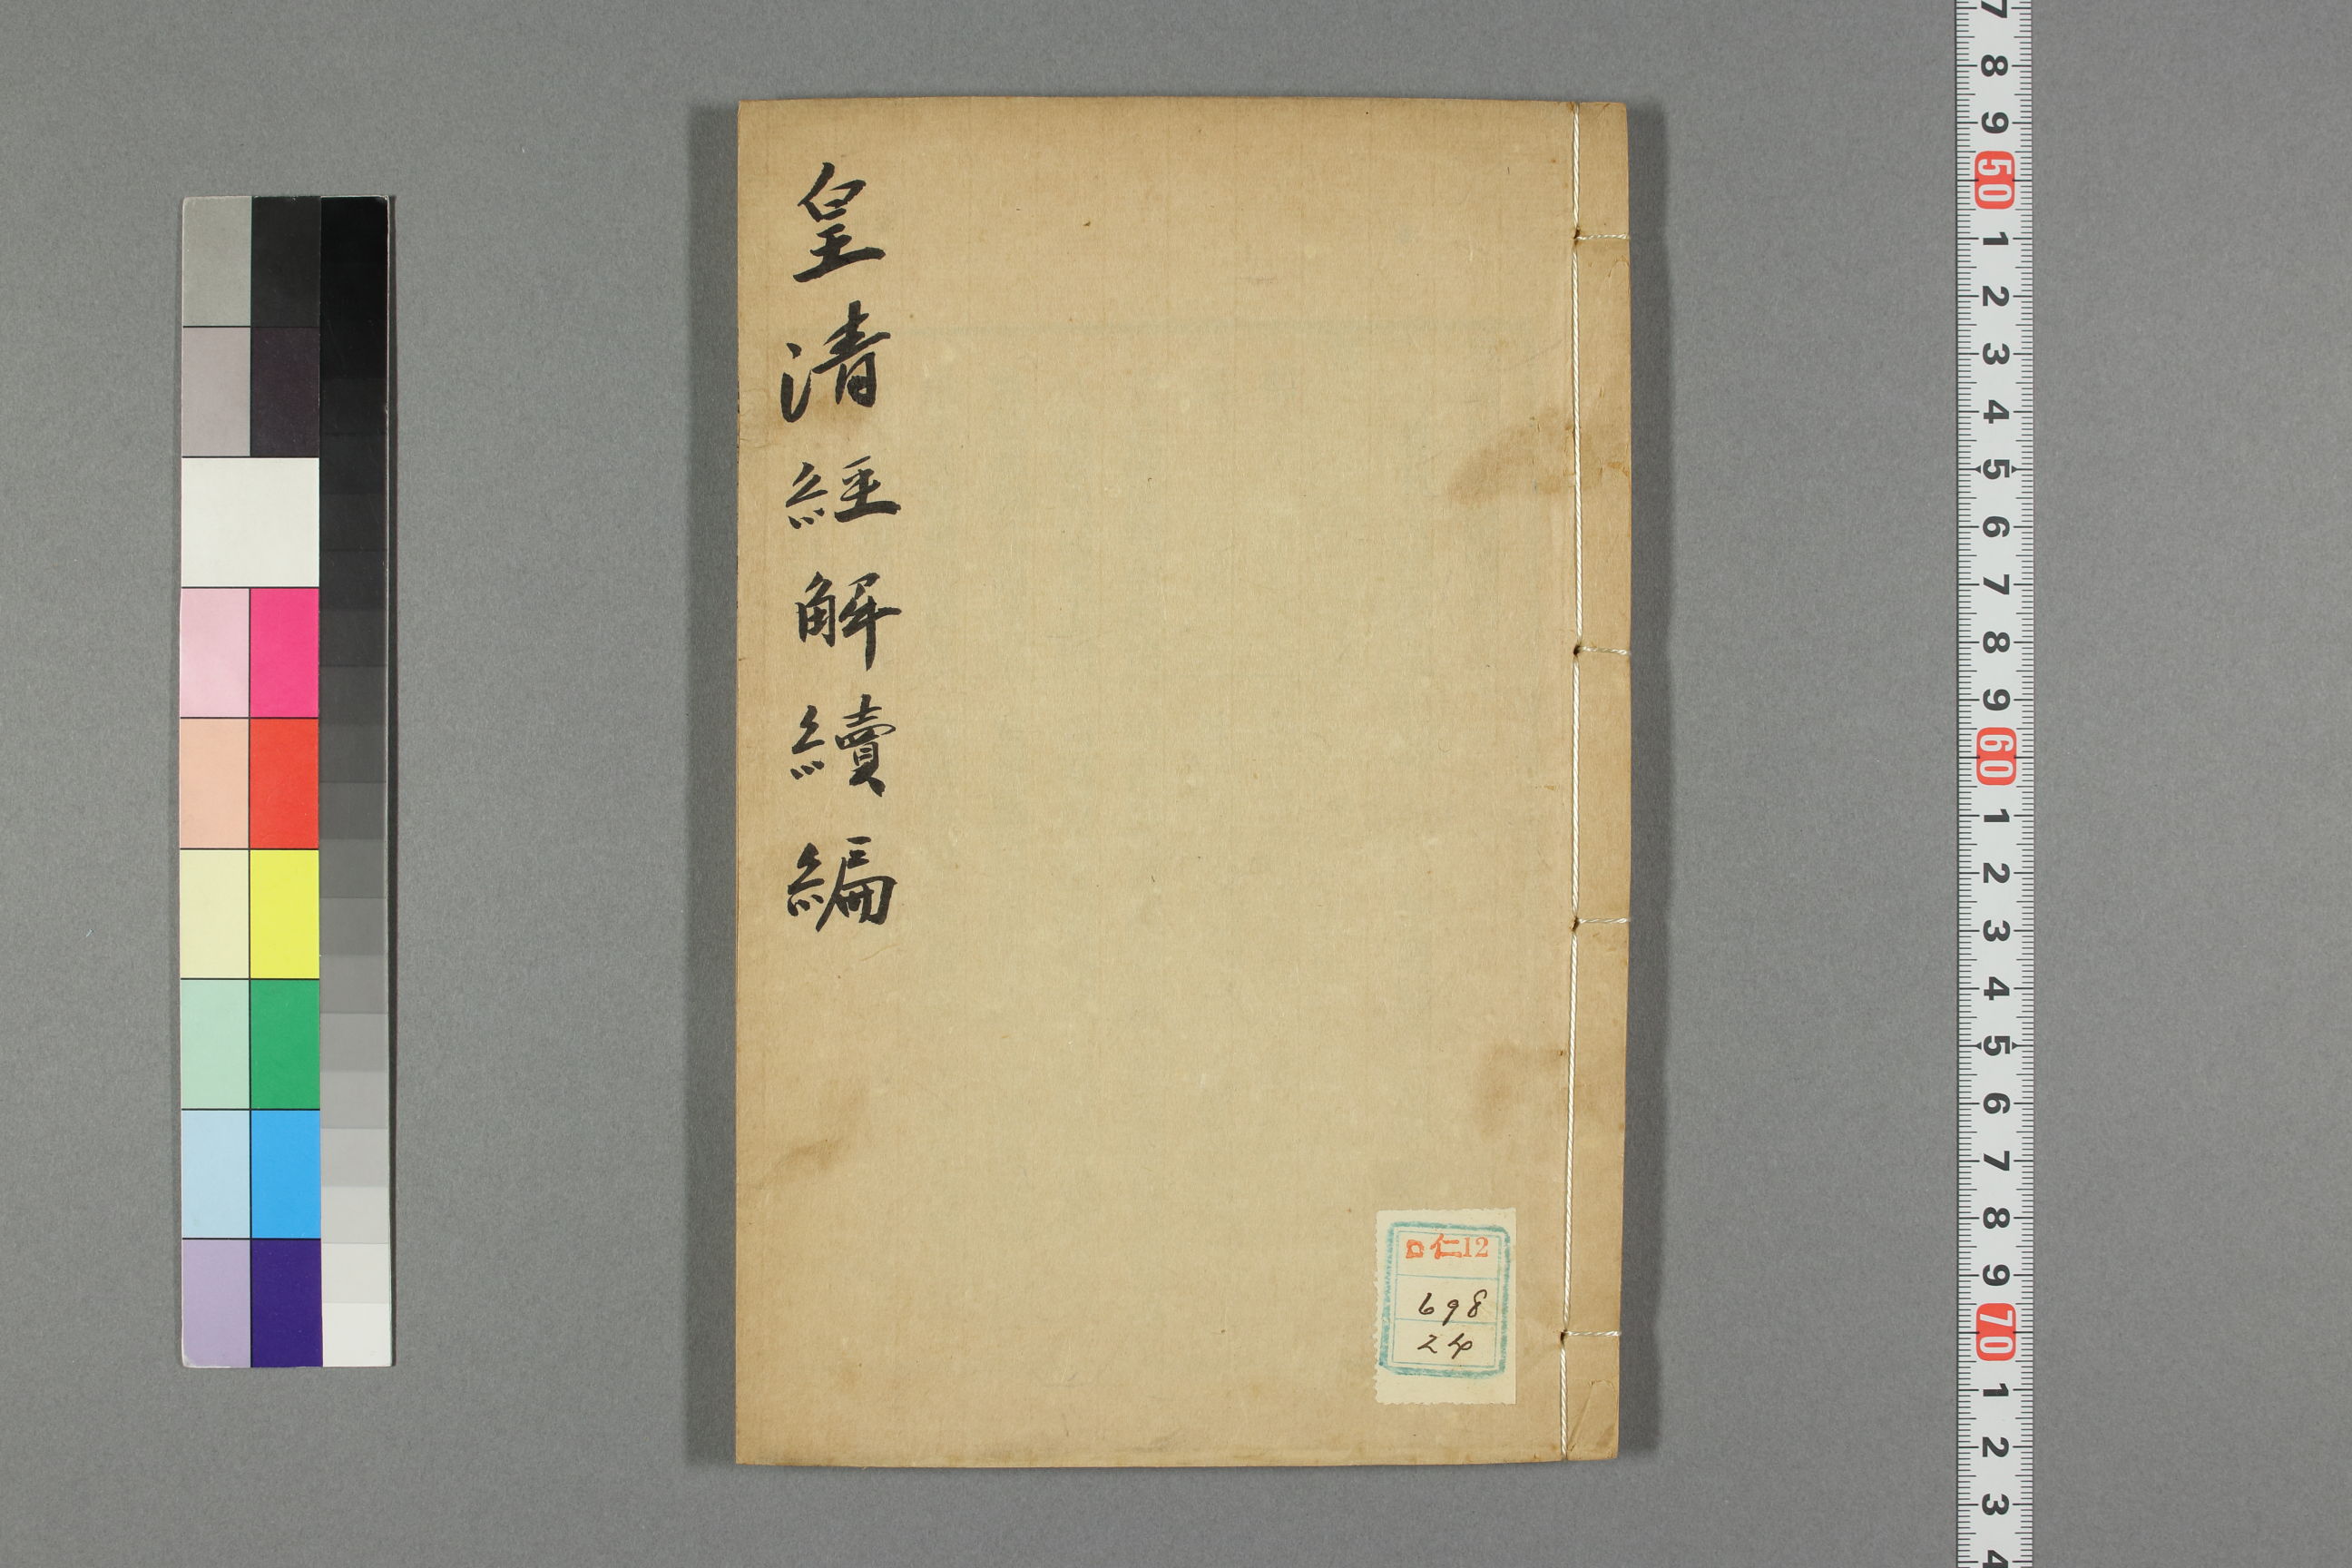 皇清經解續編
ロ仁12
698
24
7
8
9
50
1
2
3
4
5
6
7
8
9
60
1
2
3
4
5
6
7
8
9
70
1
2
3
4